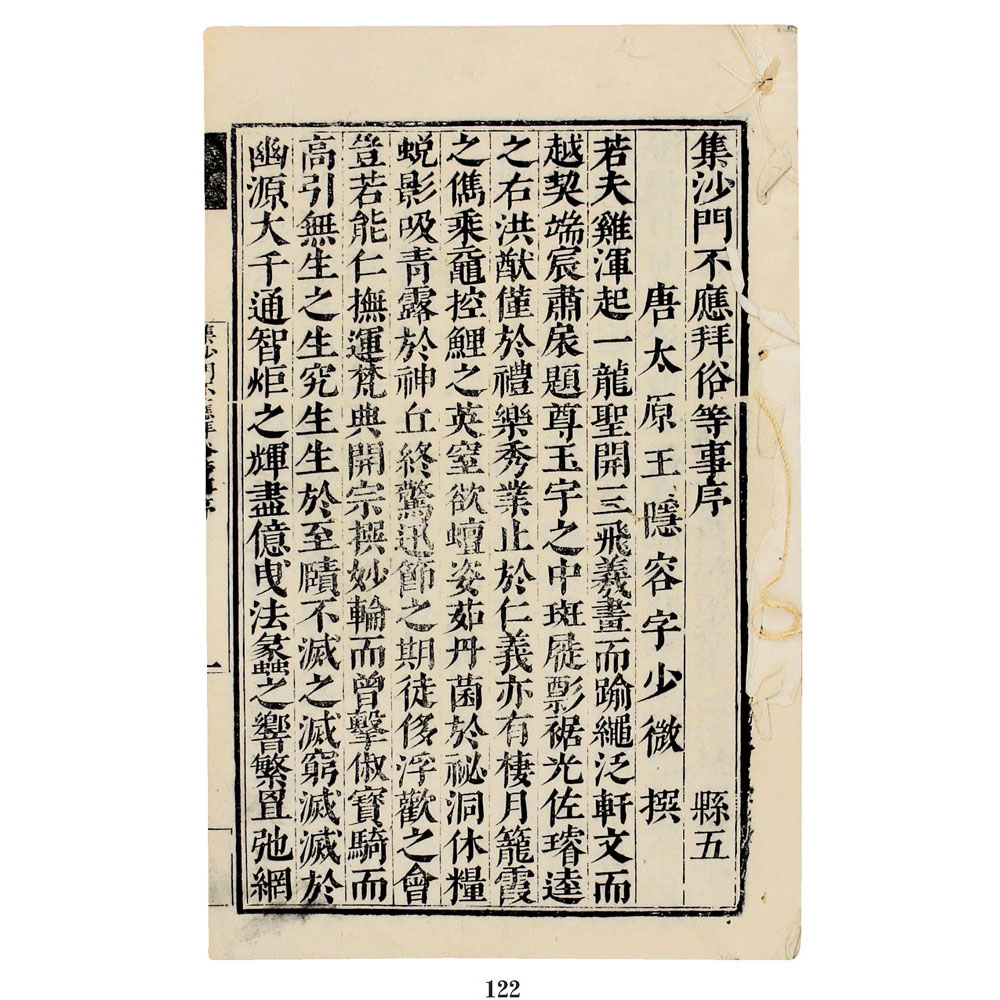 集沙門不應拜俗等事序 縣五
唐太原王隱容字少微 撰
若夫雞渾起一龍聖開三飛羲畫而踰繩泛軒文而
越契端扆肅扆題尊玉宇之中斑屣彯裾光佐璿逵
之右洪猷僅於禮樂秀業止於仁義亦有棲月籠霞
之儁乘黿控鯉之英窒欲蟺姿茹丹菌於祕洞休糧
蛻影吸青露於神丘終驚迅節之期徒侈浮歡之會
豈若能仁撫運梵典開宗撰妙輪而曾擊俶寶騎而
高引無生之生究生生於至賾不滅之滅窮滅滅於
幽源大千通智炬之輝盡億曳法蠡之響繁罝弛網
集沙門不應拜俗等事序
一
122